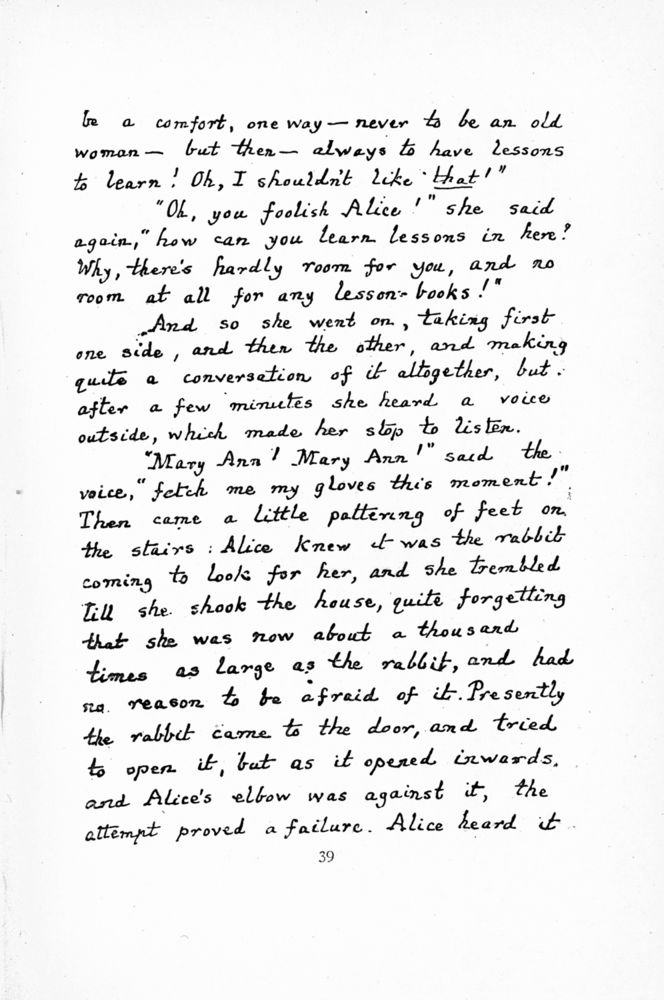 be a comfort, one way — never to be an old
woman — but then — always to have lessons
to learn! Oh, I shouldn't like that!"
"Oh, you foolish Alice!" she said
again, "how can you learn lessons in here?
Why, there's hardly room for you, and no
room at all for any lesson-books!"
And so she went on, taking first
one side, and then the other, and making
quite a conversation of it altogether, but
after a few minutes she heard a voice
outside, which made her stop to listen.
"Mary Ann! Mary Ann!" said the
voice, "fetch me my gloves this moment!"
Then came a little pattering of feet on
the stairs: Alice knew it was the rabbit
coming to look for her, and she trembled
till she shook the house, quite forgetting
that she was now about a thousand
times as large as the rabbit, and had
no reason to be afraid of it. Presently
the rabbit came to the door, and tried
to open it, but as it opened inwards,
and Alice's elbow was against it, the
attempt proved a failure. Alice heard it
39